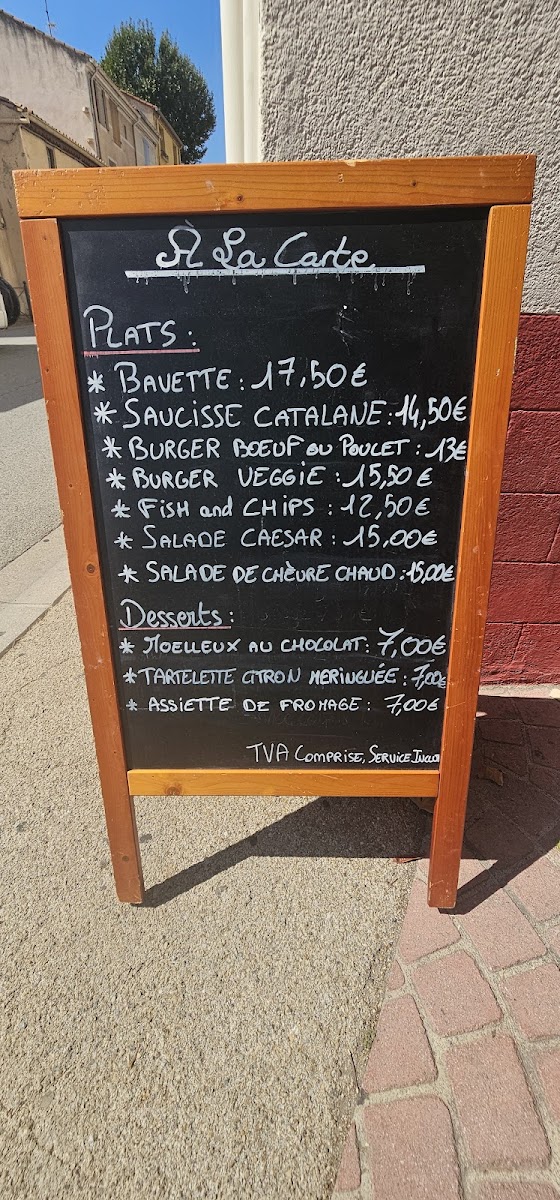 À La Carte
PLATS :
* BAVETTE : 17,50€
* SAUCISSE CATALANE : 14,50€
* BURGER BOEUF ou POULET : 13€
* BURGER VEGGIE : 15,50€
* FISH and CHIPS : 12,50€
* SALADE CAESAR : 15,00€
* SALADE DE CHÈVRE CHAUD : 15,00€
Desserts :
* MOELLEUX AU CHOCOLAT : 7,00€
* TARTELETTE CITRON MERINGUÉE : 7,00€
* ASSIETTE DE FROMAGE : 7,00€
TVA COMPRISE, SERVICE INCLUS